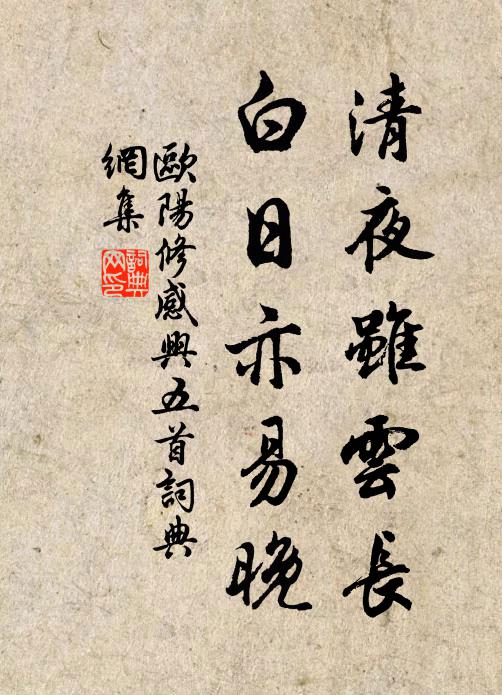 清夜雖雲長
白日亦易晚
歐陽修感興五首詞典
網集
詞典
网印